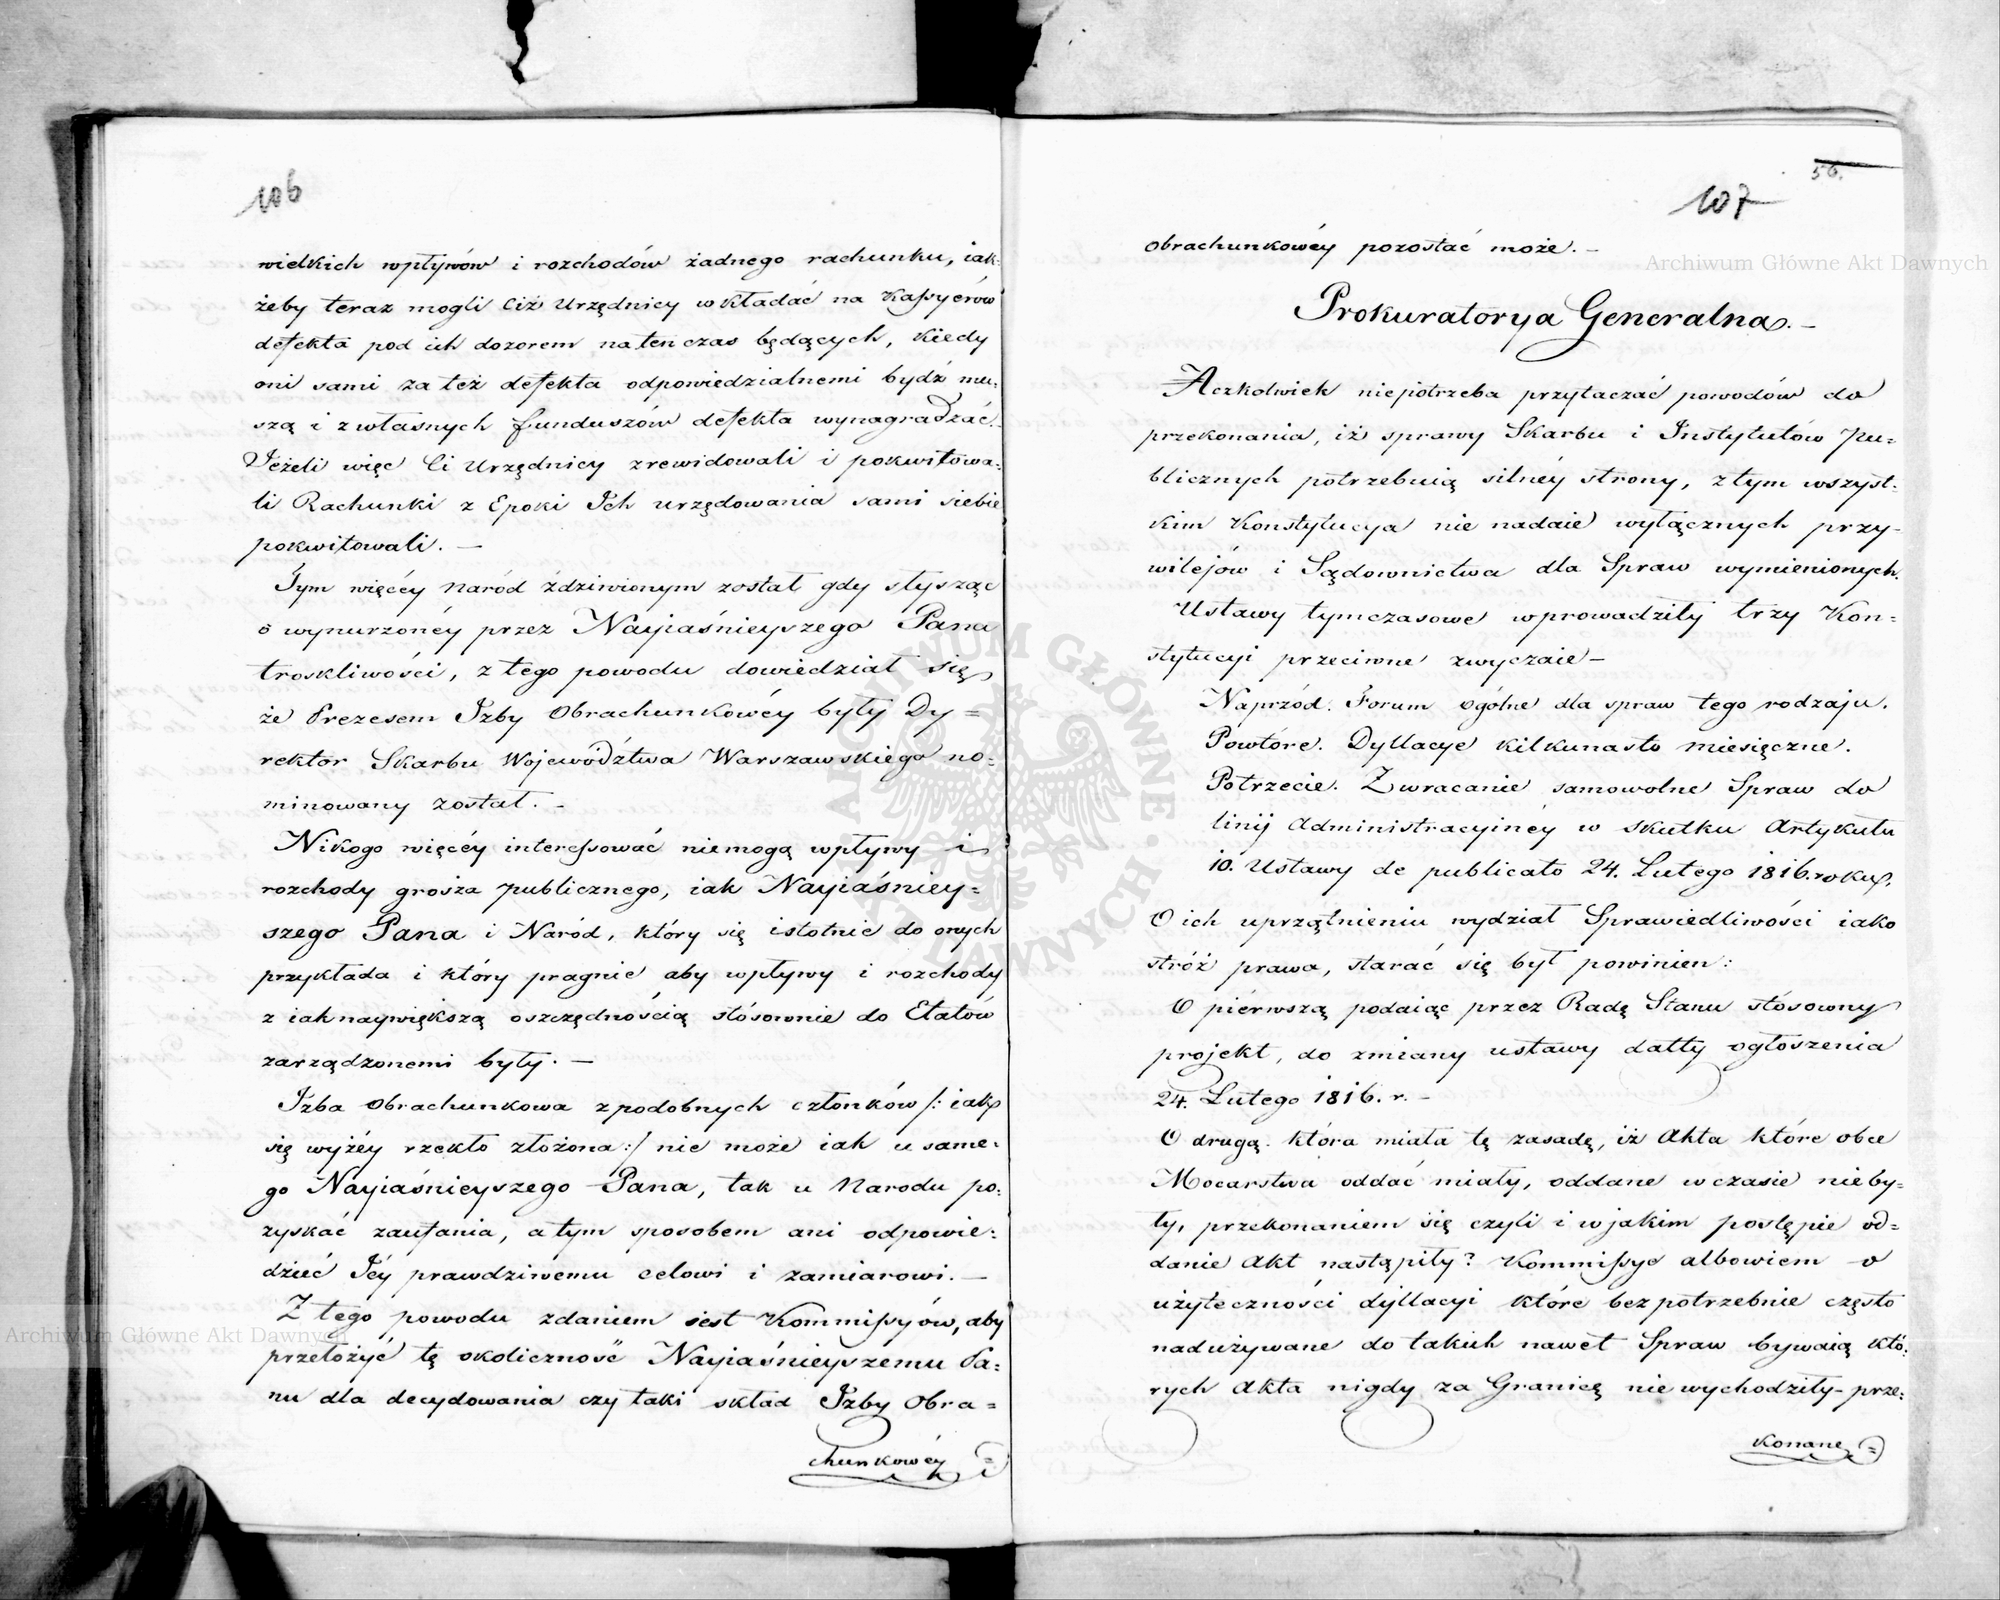 106
wielkich wpływów i rozchodów żadnego rachunku, iak-
żeby teraz mogli Ciż Urzędnicy wkładać na Kassyerów
defekta pod ich dozorem natenczas będących, Kiedy
oni sami za też defekta odpowiedzialnemi bydź mu-
szą i z własnych funduszów defekta wynagradzać.
Jeżeli więc Ci Urzędnicy zrewidowali i pokwitowa-
li Rachunki z Epoki Ich urzędowania sami siebie
pokwitowali. —
Tym więcéy Naród zdziwionym został gdy słysząc
o wynurzonéy przez Nayiaśnieyszego Pana
troskliwości, z tego powodu dowiedział się
że Prezesem Izby Obrachunkowéy były Dy=
rektor Skarbu Województwa Warszawskiego no-
minowany został. —
Nikogo więcéy interessować niemogą wpływy i
rozchody grosza publicznego, iak Nayiaśniey=
szego Pana i Naród, który się istotnie do onych
przykłada i który pragnie aby wpływy i rozchody
z iak naywiększą oszczędnością stósownie do Etatów
zarządzonemi były. —
Izba Obrachunkowa z podobnych członków /: iak
się wyżéy rzekło złożona :/ nie może iak u same-
go Nayiaśnieyszego Pana, tak u Narodu po-
zyskać zaufania, a tym sposobem ani odpowie-
dzieć Jéy prawdziwemu celowi i zamiarowi. —
Z tego powodu zdaniem iest Kommissyów, aby
przełożyć tę okoliczność Nayiaśnieyszemu Pa-
nu dla decydowania czy taki skład Izby Obra=
chunkowéy =
56.
107
obrachunkowéy pozostać może. —
Prokuratorya Generalna. —
Aczkolwiek niepotrzeba przytaczać powodów do
przekonania, iż sprawy Skarbu i Instytutów Pu=
blicznych potrzebuią silnéy strony, z tym wszyst-
kim Konstytucya nie nadaie wyłącznych przy-
wilejów i Sądownictwa dla Spraw wymienionych.
Ustawy tymczasowe wprowadziły trzy Kon=
stytucyi przeciwne zwyczaie —
Naprzód. Forum ogólne dla spraw tego rodzaju.
Powtóre. Dyllacye kilkunasto miesięczne.
Potrzecie. Zwracanie samowolne Spraw do
linij Administracyinéy w skutku Artykułu
10. Ustawy de publicato 24. Lutego 1816. roku.
O ich uprzątnieniu wydział Sprawiedliwości iako
stróż prawa, starać się był powinien:
O piérwszą podaiąc przez Radę Stanu stósowny
projekt, do zmiany ustawy datty ogłoszenia
24. Lutego 1816. r. —
O drugą. która miała tę zasadę, iż Akta które obce
Mocarstwa oddać miały, oddane w czasie nieby-
ły, przekonaniem się czyli i w jakim postępie od=
danie Akt nastąpiły? Kommissye albowiem o
użyteczności dyllacyi które bezpotrzebnie często
nadużywane do takich nawet Spraw bywaią któ-
rych Akta nigdy za Granicę nie wychodziły prze-
Konane =
Archiwum Główne Akt Dawnych
Archiwum Główne Akt Dawnych
ARCHIWUM GŁÓWNE AKT DAWNYCH